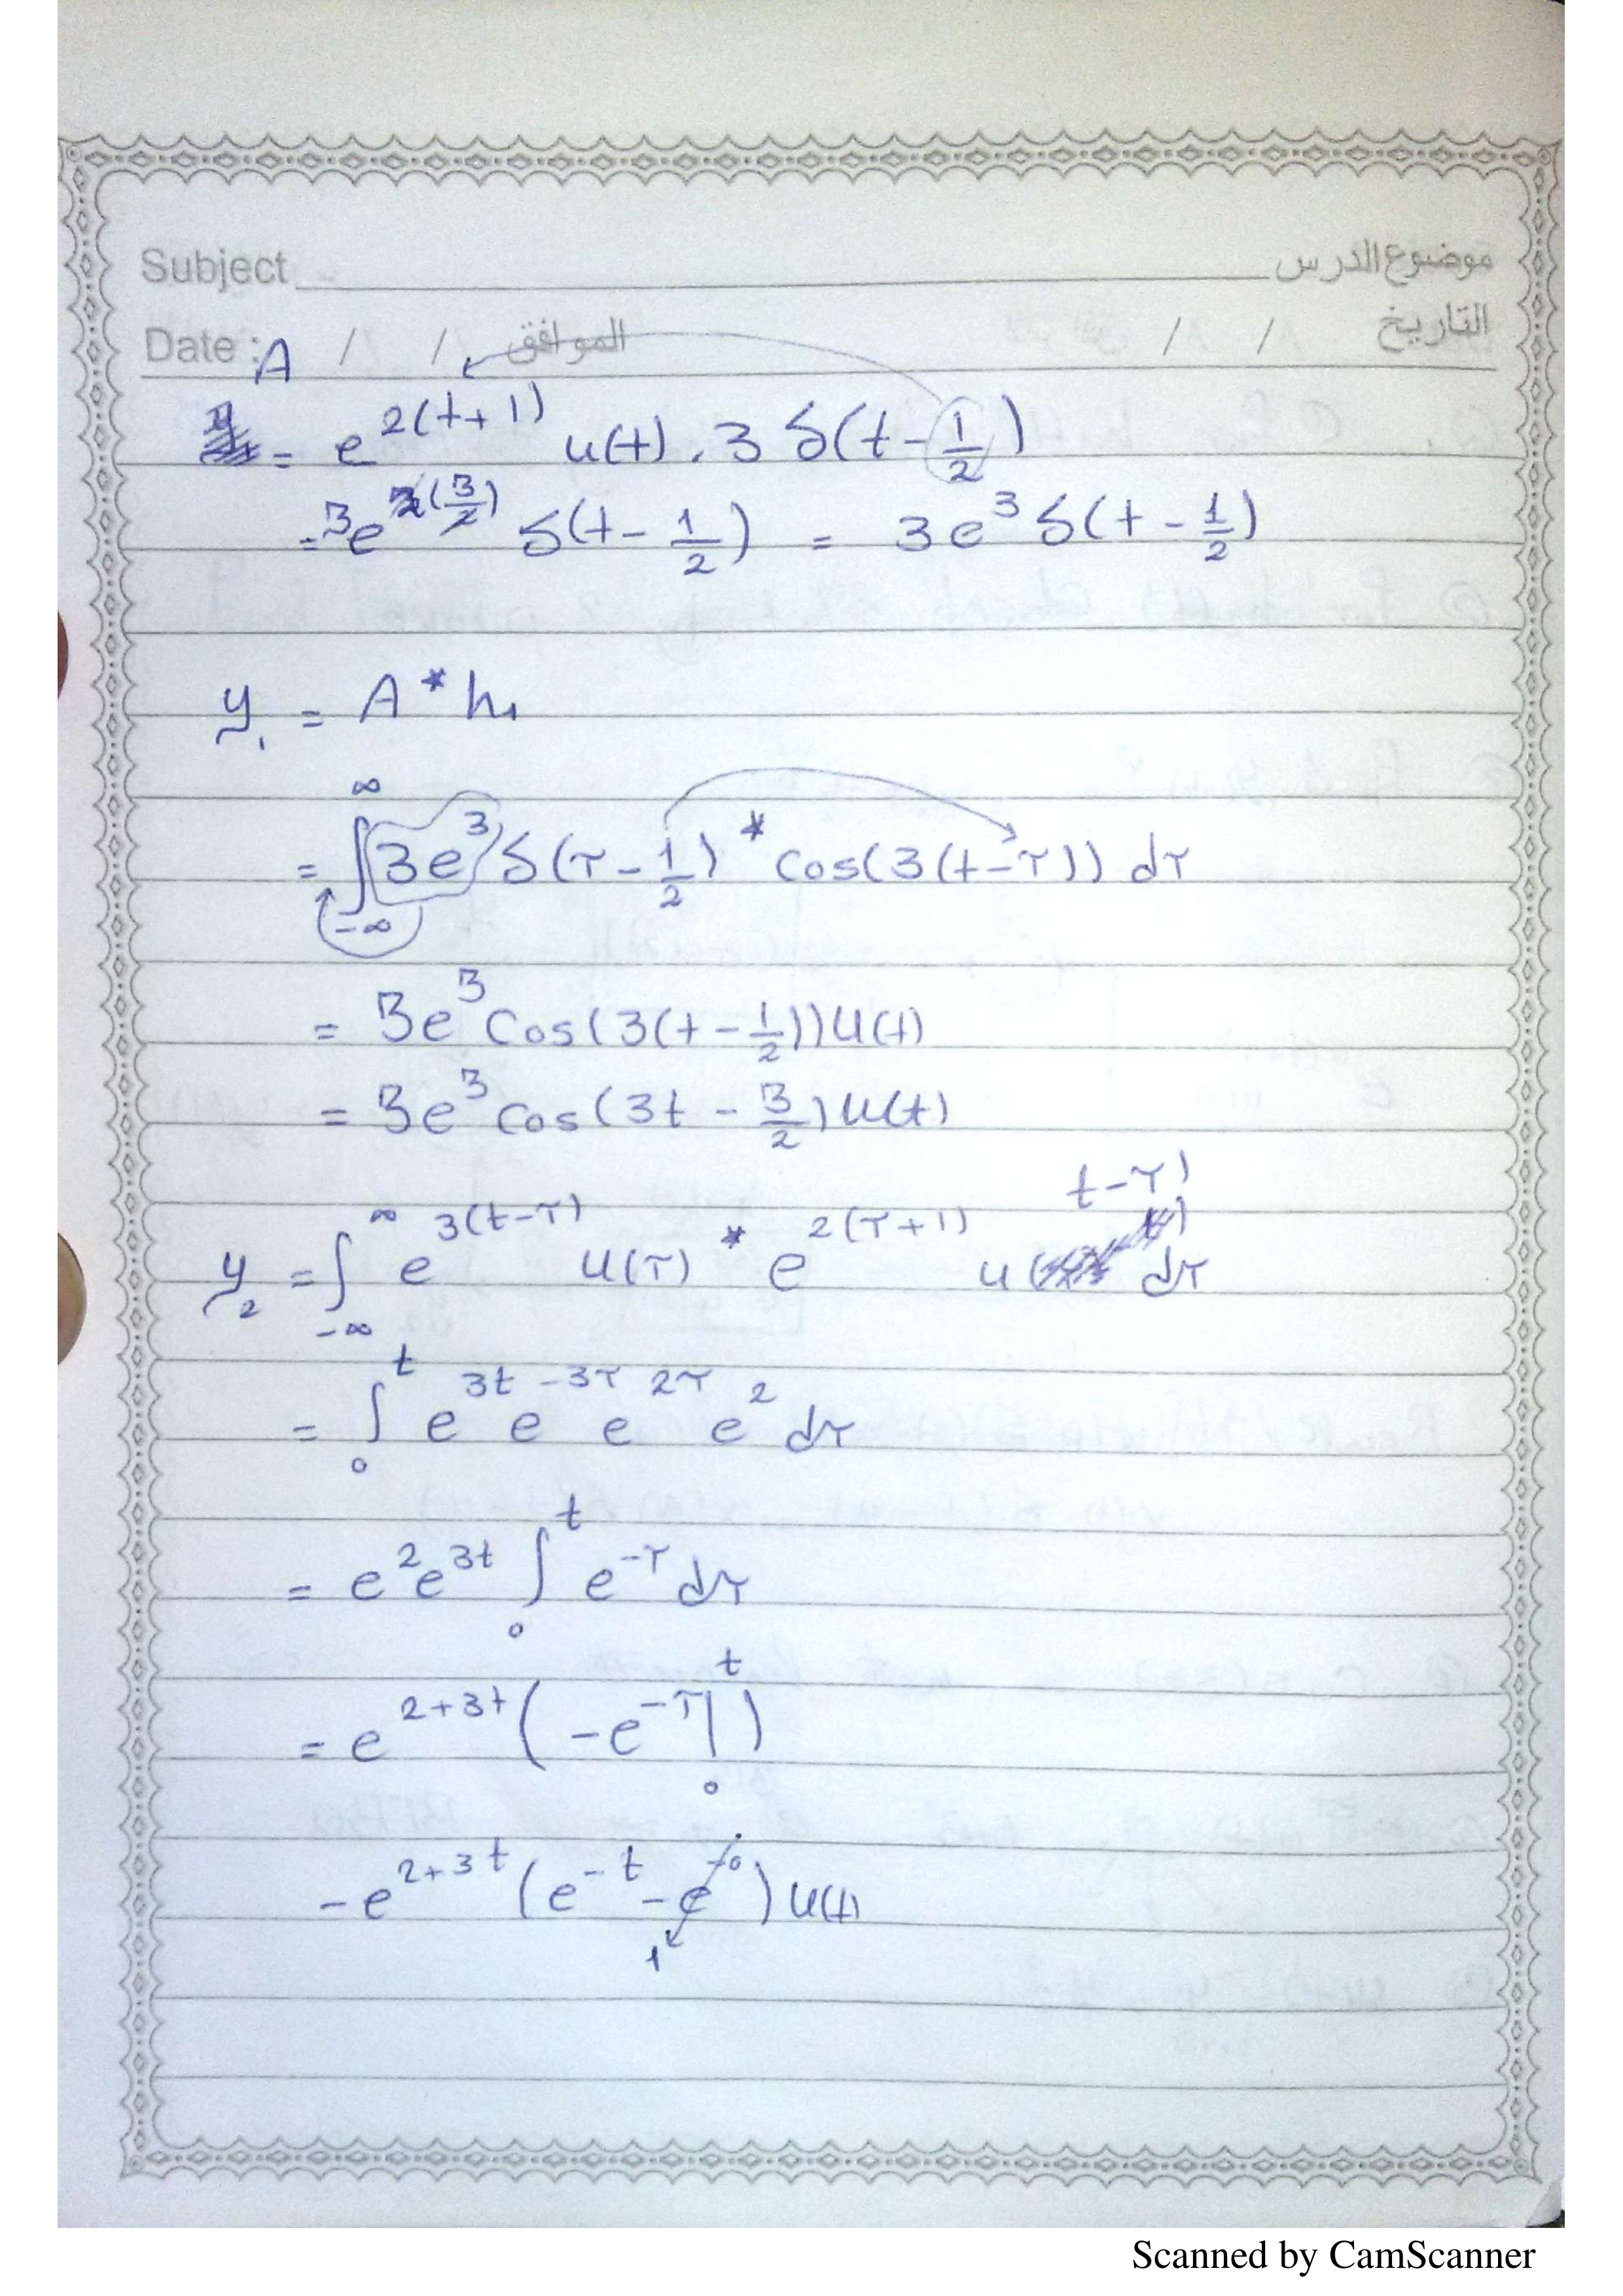 Subject موضوع الدرس
Date : / / الموافق / / التاريخ
A
= e^{2(t+1)} u(t) . 3 δ(t - 1/2)
= 3e^{2(3/2)} δ(t - 1/2) = 3e^3 δ(t - 1/2)
y_1 = A * h_1
= ∫_{-∞}^{∞} 3e^3 δ(τ - 1/2) * cos(3(t-τ)) dτ
= 3e^3 cos(3(t - 1/2)) u(t)
= 3e^3 cos(3t - 3/2) u(t)
y_2 = ∫_{-∞}^{∞} e^{3(t-τ)} u(τ) * e^{2(τ+1)} u(t-τ) dτ
= ∫_0^t e^{3t} e^{-3τ} e^{2τ} e^2 dτ
= e^2 e^{3t} ∫_0^t e^{-τ} dτ
= e^{2+3t} (-e^{-τ} |_0^t)
-e^{2+3t} (e^{-t} - e^{-0}) u(t)
1
Scanned by CamScanner